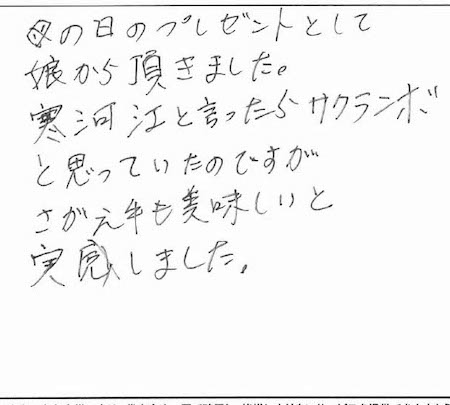 父の日のプレゼントとして
娘から頂きました。
寒河江と言ったらサクランボ
と思っていたのですが
さがえ牛も美味しいと
実感しました。